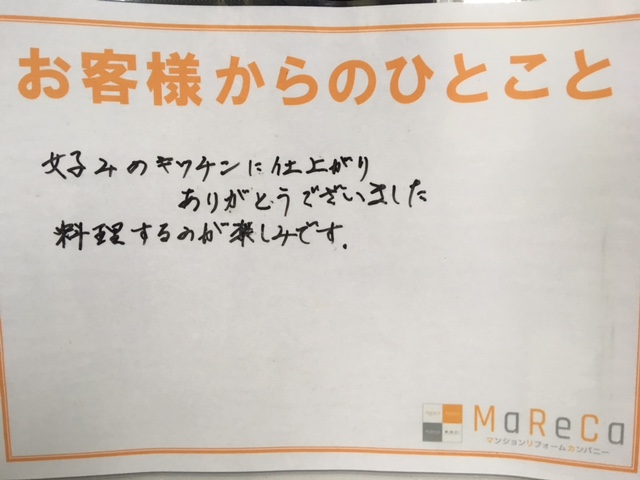 お客様からのひとこと
好みのキッチンに仕上がり
ありがとうございました
料理するのが楽しみです.
MaReCa
マンションリフォームカンパニー